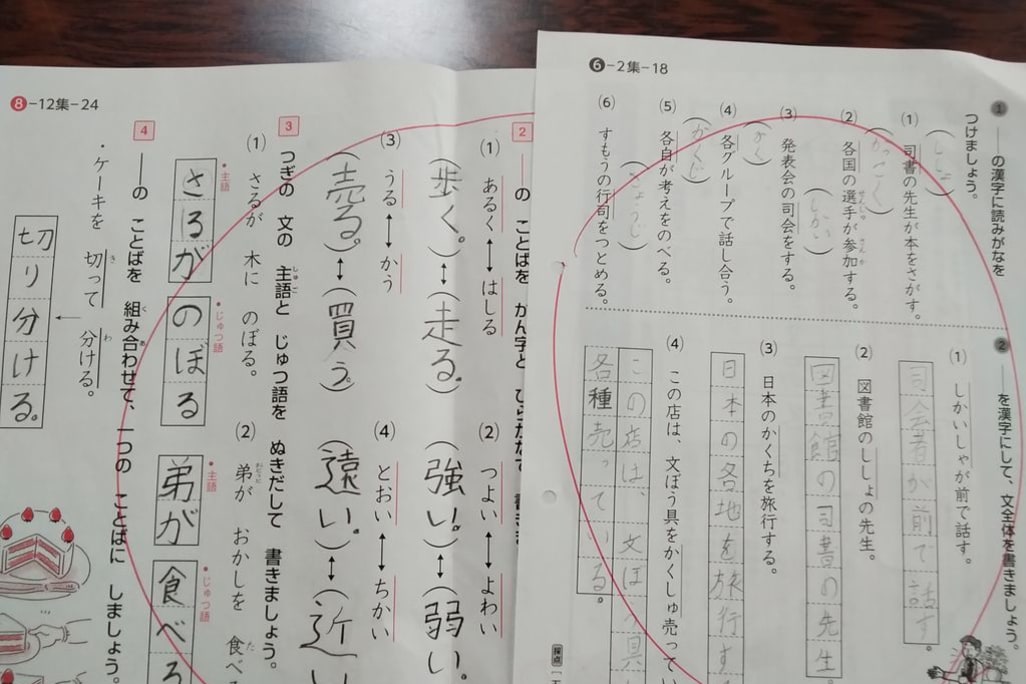 6-2集-18
1 ――の漢字に読みがなをつけましょう。
(1) 司書の先生が本をさがす。
(ししょ)
(2) 各国の選手が参加する。
せんしゅ さんか
(かっこく)
(3) 発表会の司会をする。
(しかい)
(4) 各グループで話し合う。
(かく)
(5) 各自が考えをのべる。
(かくじ)
(6) すもうの行司をつとめる。
(ぎょうじ)
2 ――を漢字にして、文全体を書きましょう。
(1) しかいしゃが前で話す。
司会者が前で話す。
(2) 図書館のししょの先生。
図書館の司書の先生。
(3) 日本のかくちを旅行する。
日本の各地を旅行す
(4) この店は、文ぼう具をかくしゅ売ってい
この店は、文ぼう具
各種売っている。
採点
8-12集-24
2 ――の ことばを かん字と ひらがなで 書きま
(1) あるく↔はしる
(歩く。)↔(走る。)
(2) つよい↔よわい
(強い。)↔(弱い。
(3) うる↔かう
(売る。)↔(買う。)
(4) とおい↔ちかい
(遠い。)↔(近い
3 つぎの 文の 主語と じゅつ語を ぬきだして 書きましょう。
しゅご
(1) さるが 木に のぼる。
・主語
さるが
・じゅつ語
のぼる
(2) 弟が おかしを 食べ
おとうと
た
・主語
弟が
・じゅつ語
食べる
4 ――の ことばを 組み合わせて、一つの ことばに しましょう。
く あ
・ケーキを 切って 分ける。
き わ
切り分ける。